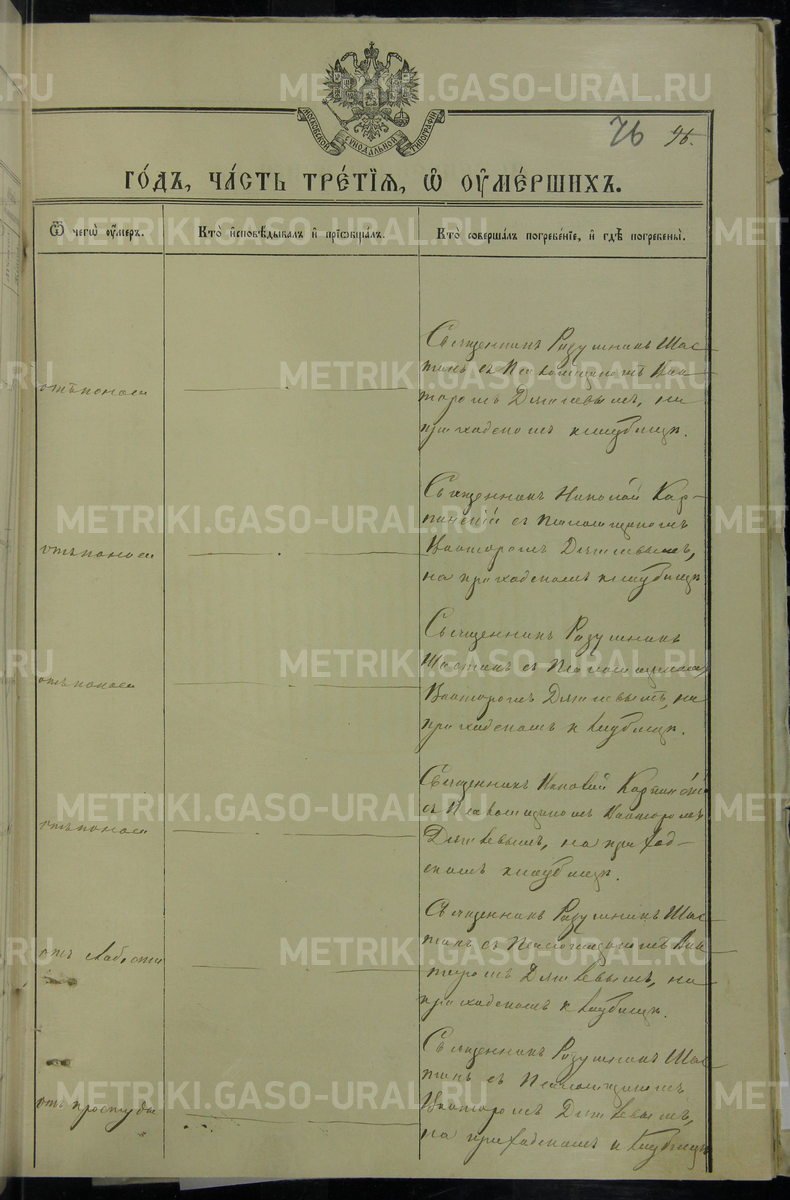 METRIKI.GASO-URAL.RU
МОСКОВСКОЙ СѴНОДАЛЬНОЙ ТИПОГРАФІИ
76 96.
ГО́ДЪ, ЧА́СТЬ ТРЕ́ТЇѦ, Ѡ҆ ОУ҆МЕ́РШИХЪ.
Ѿ чегѡ̀ оу҆́меръ.
Кто̀ и҆сповѣ́дывалъ и҆ прїѡбща́лъ.
Кто̀ соверша́лъ погребе́нїе, и҆ гдѣ̀ погребены̀.
отъ поноса
Священникъ Разумникъ Шас-
тинъ съ Псаломщикомъ Вик-
торомъ на
приходскомъ кладбищѣ.
отъ поноса
Священникъ Николай Кар-
пинскій съ Псаломщикомъ
Викторомъ
на приходскомъ кладбищѣ
отъ поноса
Священникъ Разумникъ
Шастинъ съ Псаломщикомъ
Викторомъ на
приходскомъ кладбищѣ.
отъ поноса
Священникъ Николай Карпинскій
съ Псаломщикомъ Викторомъ
на приход-
скомъ кладбищѣ.
отъ слабости
Священникъ Разумникъ Шас-
тинъ съ Псаломщикомъ Вик-
торомъ на
приходскомъ кладбищѣ.
отъ простуды
Священникъ Разумникъ Шас-
тинъ съ Псаломщикомъ
Викторомъ
на приходскомъ кладбищѣ